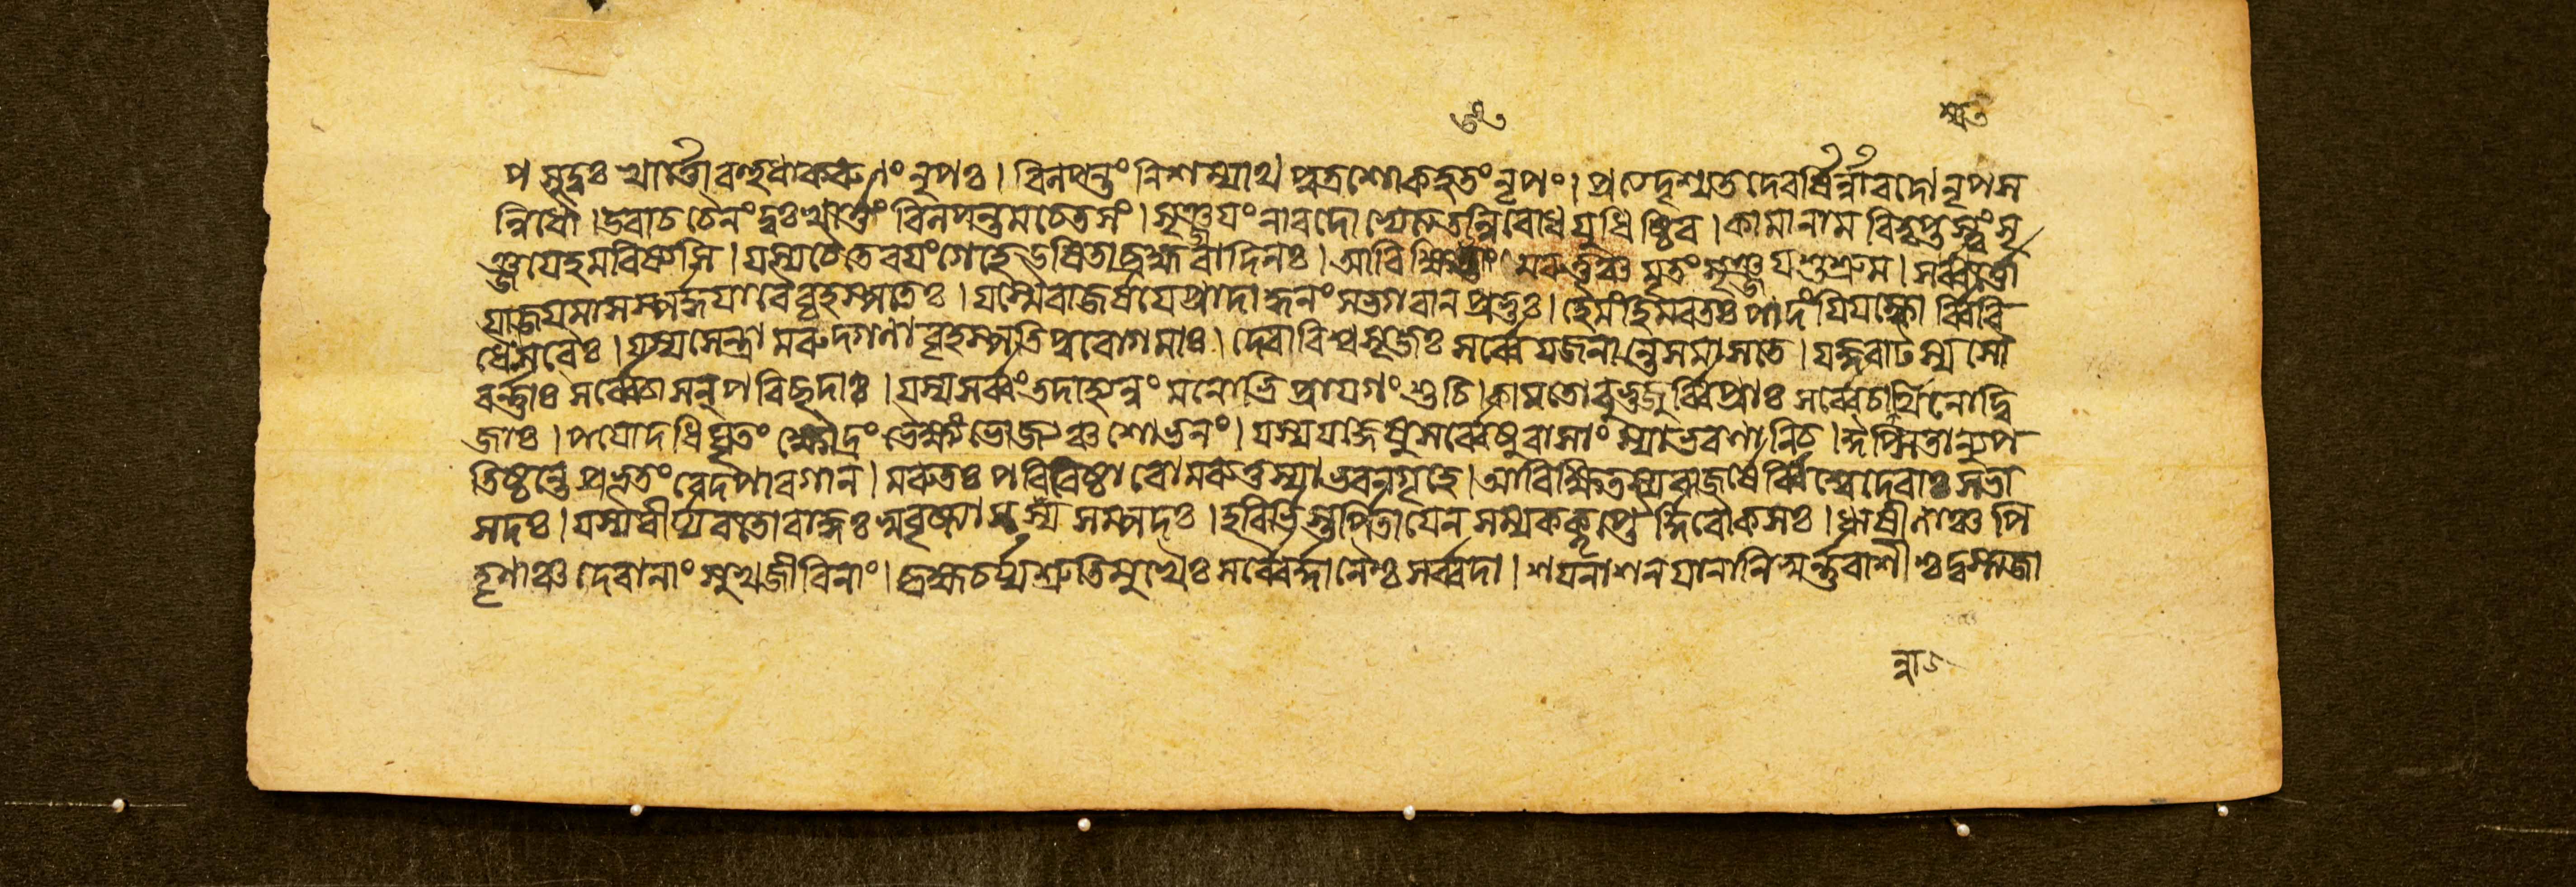 প সুদুঃখার্ত্তো বহুধাকরুণং নৃপঃ । বিলপন্তং নিশম্যাথ পুত্রশোকহতং নৃপং । প্রত্যদৃশ্যত দেবর্ষির্ন্নারদো নৃপস
ন্নিধৌ । উবাচ চৈনং দুঃখার্ত্তং বিলপন্তমচেতসং । সৃঞ্জয়ং নারদো
যুধিষ্ঠির । কামানামবিতৃপ্তস্ত্বং সৃ
ঞ্জয়েহ মরিষ্যসি । যস্য চৈতে বয়ং গেহে উষিতা ব্রহ্মবাদিনঃ । আবিক্ষিতং মরুত্তঞ্চ মৃতং সৃঞ্জয় শুশ্রুম । সম্বর্ত্তো
যাজয়মাস স্পর্দ্ধয়া বৈ বৃহস্পতেঃ । যস্মৈ রাজর্ষয়ে প্রাদাদ্ধনং স ভগবান প্রভুঃ । হৈমং হিমবতঃ পাদং যিযক্ষো র্ব্বিবি
ধৈঃ সবৈঃ । যস্য সেন্দ্রা মরুদ্গণা বৃহস্পতিপুরোগমাঃ । দেবা বিশ্বসৃজঃ সর্ব্বে যজনান্তে সমাসতে । যজ্ঞবাটস্য সৌ
বর্ণ্ণাঃ সর্ব্বে চাসন্ পরিচ্ছদাঃ । যস্য সর্ব্বং তদা হ্যন্নং মনোভিপ্রায়গং শুচি । কামতো বুভুজুর্ব্বিপ্রাঃ সর্ব্বে চার্থিনো দ্বি
জাঃ । পয়োদধি ঘৃতং ক্ষৌদ্রং ভক্ষ্যং ভোজ্যঞ্চ শোভনং । যস্য যজ্ঞেষু সর্ব্বেষু বাসাংস্যাভরণানি চ । ঈপ্সিতান্যুপ
তিষ্ঠন্তে প্রহৃতং বেদপারগান । মরুতঃ পরিবেষ্টারো মরুত্তস্যাভবন গৃহে । আবিক্ষিতস্য রাজর্ষে র্ব্বিশ্বেদেবাঃ সভা
সদঃ । যস্য বীর্য্যবতো রাজ্ঞঃ সুবৃষ্ট্যা সস্য সম্পদঃ । হবির্ভিস্তর্পিতা যেন সম্যক কৢপ্তৈ র্দ্দিবৌকসঃ । ঋষীণাঞ্চ পি
তৄণাঞ্চ দেবানাং সুখজীবিনাং । ব্রহ্মচর্য্যশ্রুতিমুখৈঃ সর্ব্বৈর্দ্দানৈশ্চ সর্ব্বদা । শয়নাশনযানানি